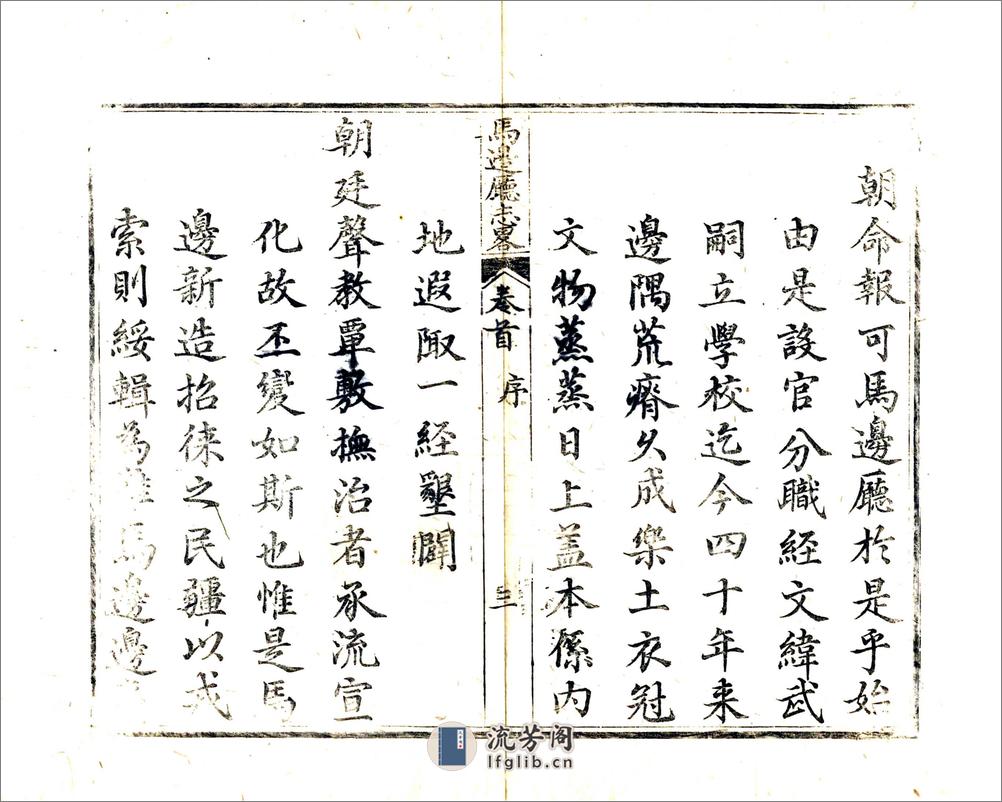 朝命報可馬邊廳於是乎始
由是設官分職經文緯武
嗣立學校迄今四十年来
邊隅荒瘠久成樂土衣冠
文物蒸蒸日上盖本係内
馬邊廳志畧 卷首 序 三
地遐陬一經墾闢
朝廷聲教覃敷撫治者承流宣
化故丕變如斯也惟是馬
邊新造招徠之民疆以戎
索則綏輯為難馬邊邊
流芳阁
lfglib.cn